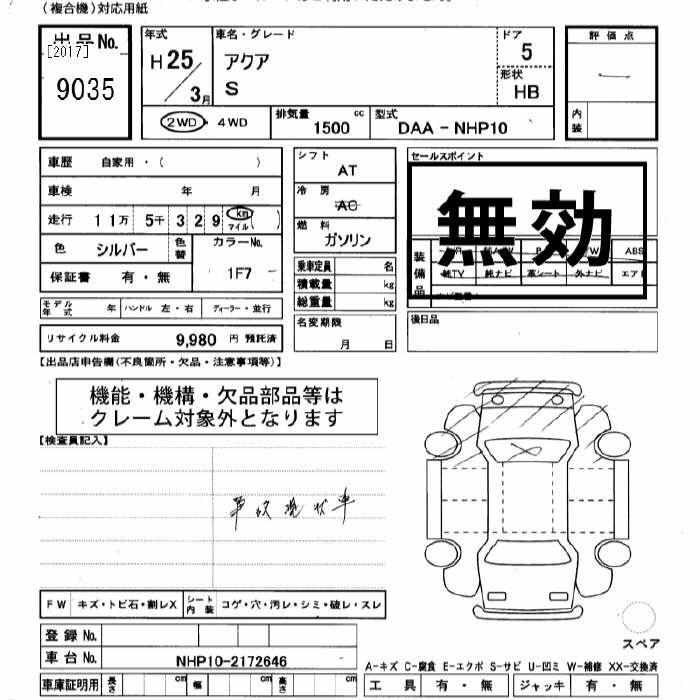 (複合機)対応用紙
出品No.
[2017]
9035
年式
H25/3月
車名・グレード
アクア
S
ドア
5
形状
HB
評価点
内装
2WD・4WD
排気量 cc
1500
型式
DAA-NHP10
車歴 自家用・( )
車検 年 月
走行 11万 5千 329 km マイル ( )
色 シルバー 色替 カラーNo.
1F7
保証書 有・無
モデル年式 年 ハンドル 左・右 ディーラー・並行
リサイクル料金 9,980 円 預託済
シフト
AT
冷房
AC
燃料
ガソリン
乗車定員 名
積載量 kg
総重量 kg
名変期限
月 日
セールスポイント
無効
装備品
ABS
純TV 純ナビ 革シート 外ナビ エアB
後日品
【出品店申告欄(不良箇所・欠品・注意事項等)】
機能・機構・欠品部品等は
クレーム対象外となります
【検査員記入】
事故現状車
FW キズ・トビ石・割レX シート内装 コゲ・穴・汚レ・シミ・破レ・スレ
登録No.
車台No. NHP10-2172646
車庫証明用 長さ cm 幅 cm 高さ cm
スペア
A-キズ C-腐食 E-エクボ S-サビ U-凹ミ W-補修 XX-交換済
工具 有・無 ジャッキ 有・無